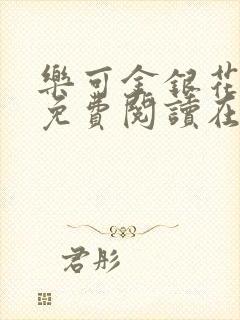 樂可金銀花
免費閱讀在
君彤